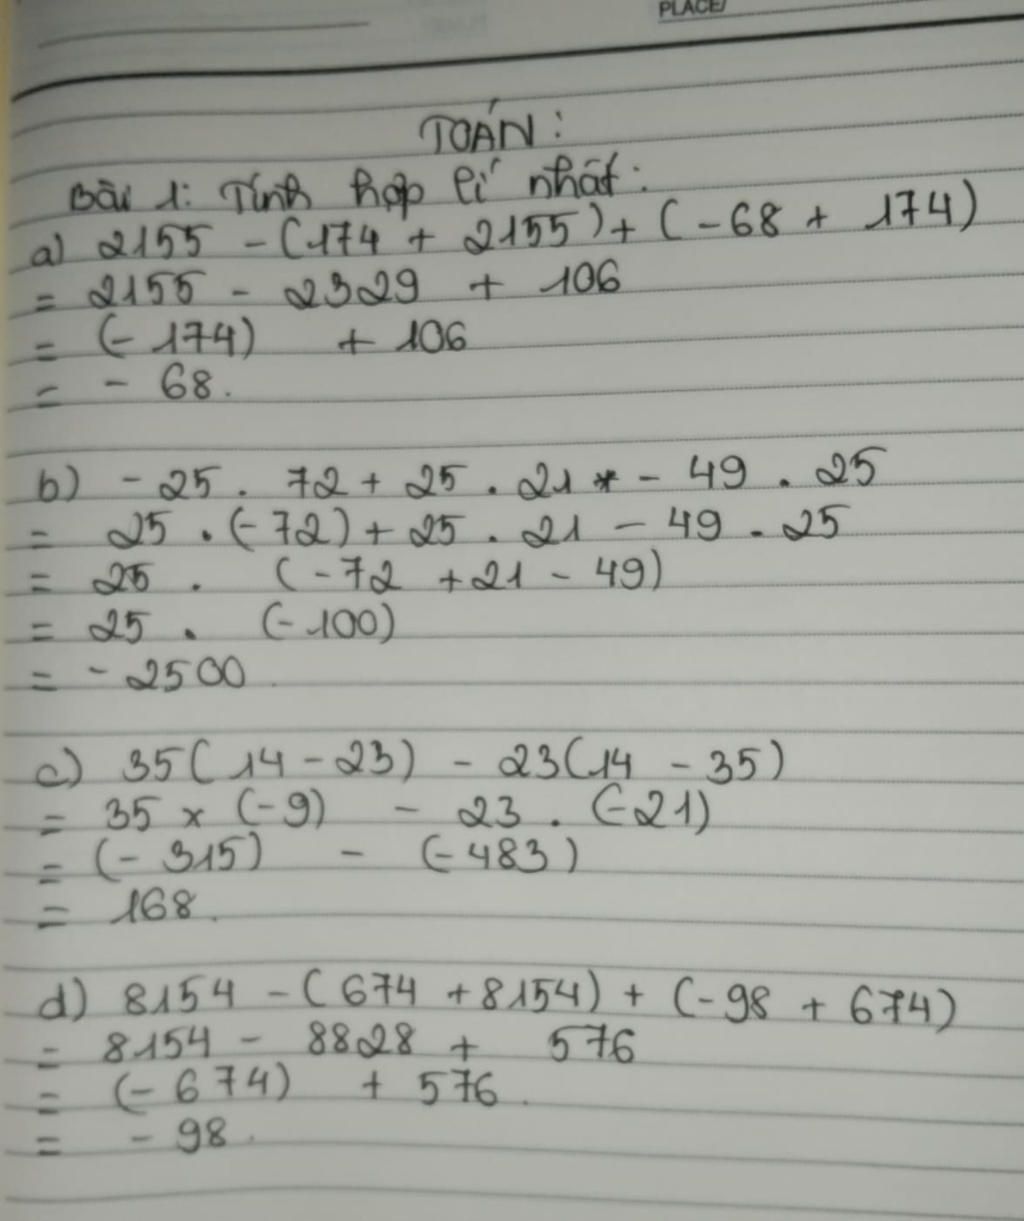 PLACE/
TOÁN:
Bài 1: Tính hợp lí nhất:
a) 2155 - (174 + 2155) + (-68 + 174)
= 2155 - 2329 + 106
= (-174) + 106
= - 68.
b) - 25 . 72 + 25 . 21 - 49 . 25
= 25 . (-72) + 25 . 21 - 49 . 25
= 25 . (-72 + 21 - 49)
= 25 . (-100)
= - 2500
c) 35(14 - 23) - 23(14 - 35)
= 35 x (-9) - 23 . (-21)
= (-315) - (-483)
= 168.
d) 8154 - (674 + 8154) + (-98 + 674)
= 8154 - 8828 + 576
= (-674) + 576.
= - 98.